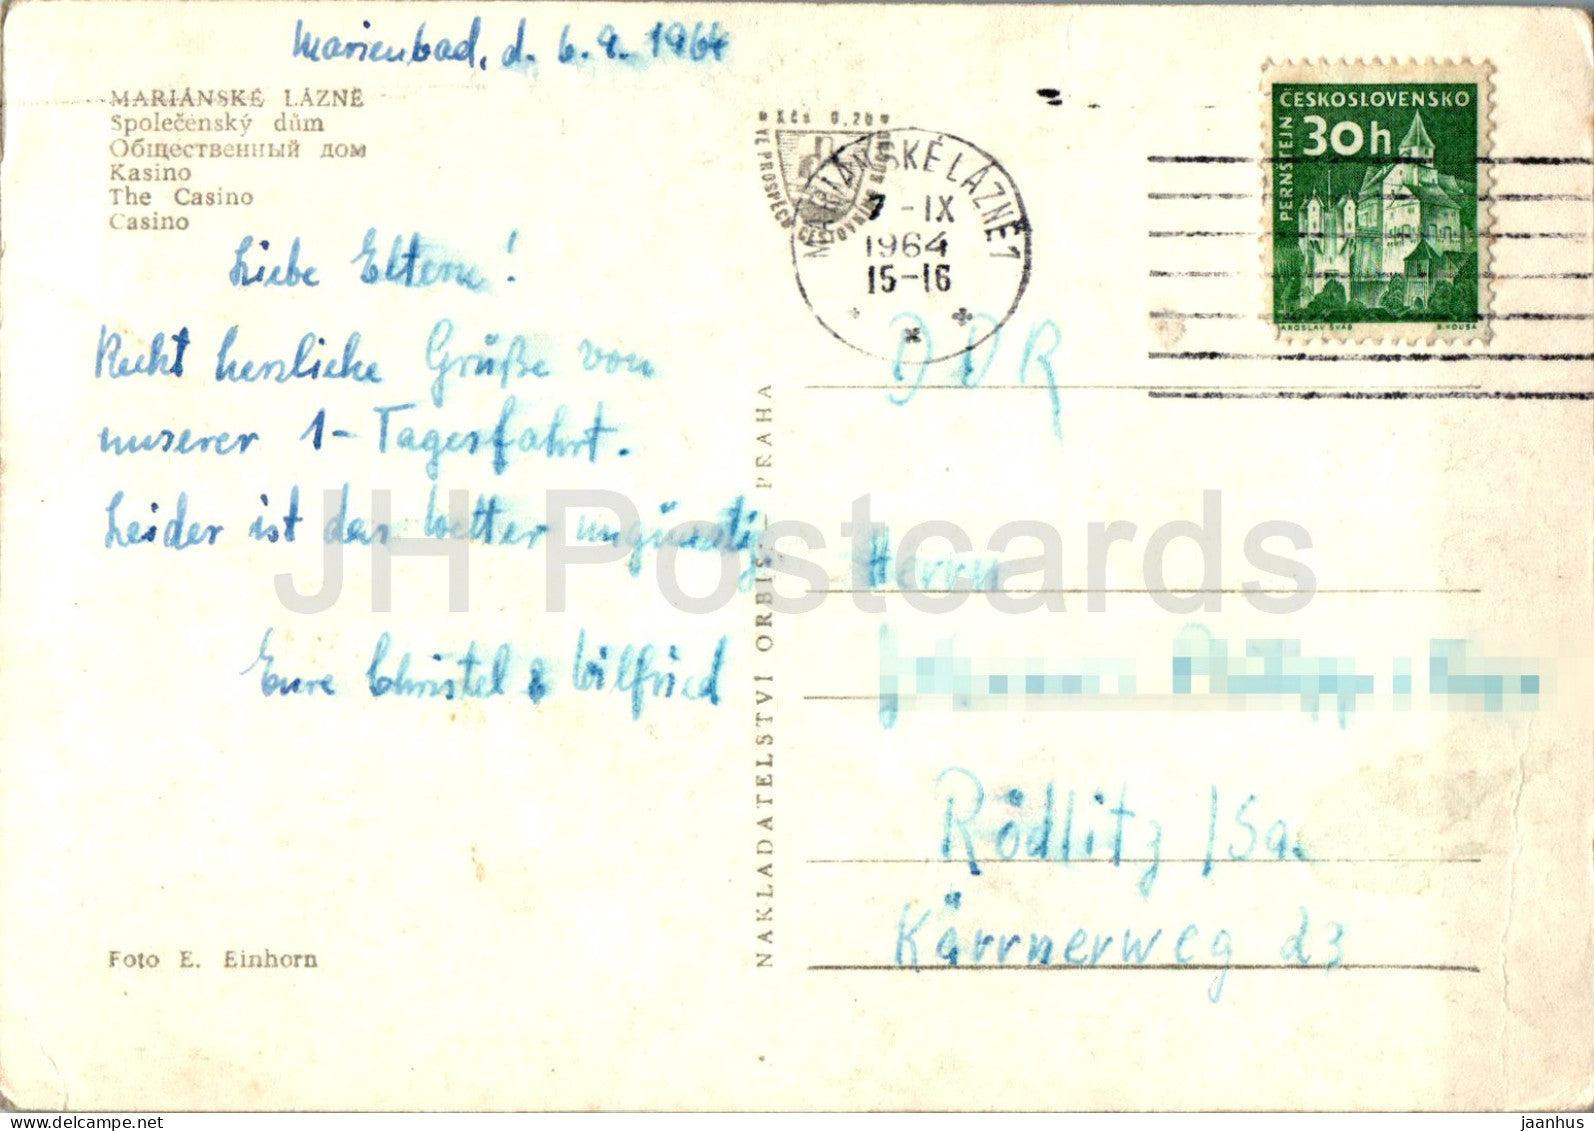 Marienbad, d. 6.9.1964
MARIÁNSKÉ LÁZNĚ
Společenský dům
Общественный дом
Kasino
The Casino
Casino
Liebe Eltern!
Recht herzliche Grüße von
unserer 1-Tagesfahrt.
Leider ist das Wetter ungünstig.
Eure Christel & Wilfried
Foto E. Einhorn
NAKLADATELSTVÍ ORBIS - PRAHA
* Kčs 0,20 *
VE PROSPĚCH
MARIÁNSKÉ LÁZNĚ 1
7-IX
1964
15-16
ČESKOSLOVENSKO
30h
PERNŠTEJN
JAROSLAV ŠVÁB
B. HOUSA
DDR
Herrn
Rödlitz /Sa.
Kärrnerweg d3
JH Postcards
delcampe.net
jaanhus